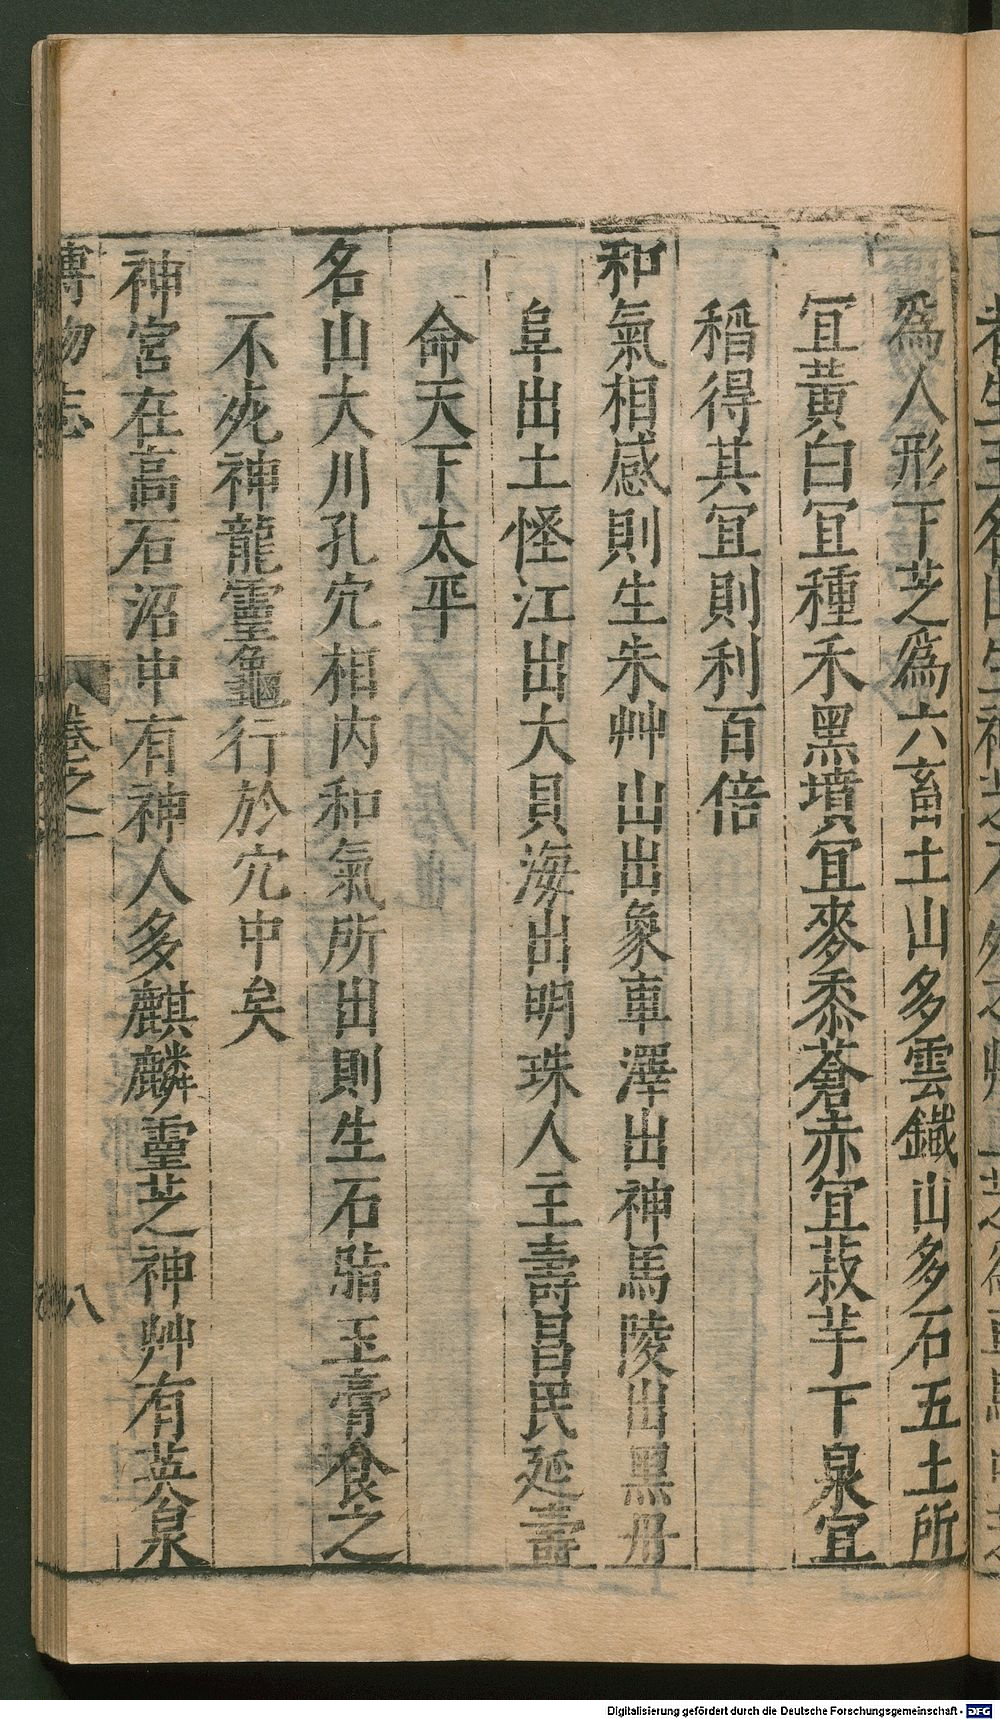 爲人形下芝爲六畜土山多雲鐵山多石五土所
冝黃白冝種禾黑墳冝麥黍蒼赤冝菽芋下泉冝
稻得其冝則利百倍
和氣相感則生朱艸山出象車澤出神馬陵出黑丹
阜出土怪江出大貝海出明珠人主壽昌民延壽
命天下太平
名山大川孔穴相内和氣所出則生石脂玉膏食之
不死神龍靈龜行於穴中矣
神宮在高石沼中有神人多麒麟靈芝神艸有英泉
博物志 卷之一 八
Digitalisierung gefördert durch die Deutsche Forschungsgemeinschaft - DFG